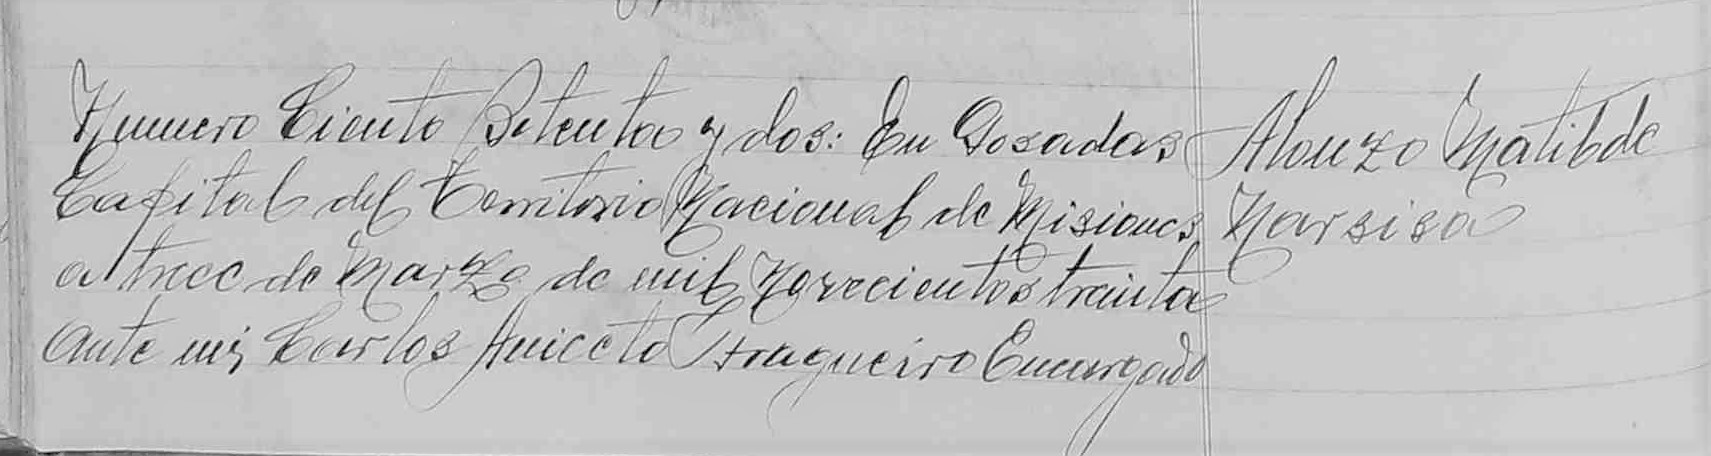 Numero Ciento Setenta y dos: En Posadas
Capital del Territorio Nacional de Misiones
a trece de Marzo de mil Novecientos treinta
ante mi, Carlos Aniceto Fragueiro Encargado
Alonzo Matilde
Narsisa